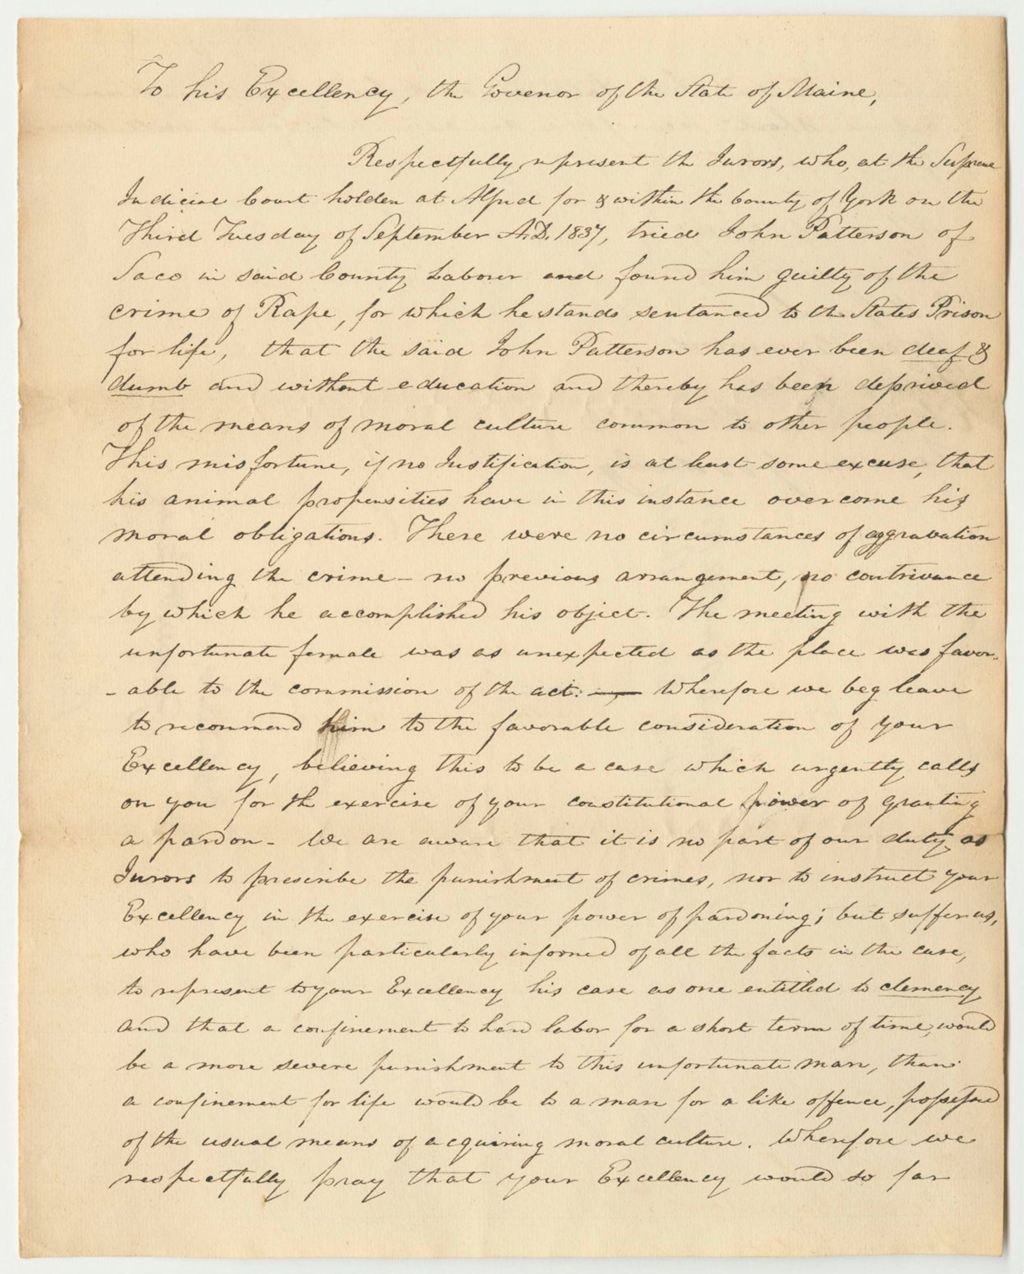 To his Excellency, the Govenor of the State of Maine,
Respectfully represent the Jurors, who, at the Supreme
Judicial Court holden at Alfred for & within the County of York on the
Third Tuesday of September A.D. 1837, tried John Patterson of
Saco in said County Laborer and found him guilty of the
crime of Rape, for which he stands sentanced to the States Prison
for life, that the said John Patterson has ever been deaf &
dumb and without education and thereby has been deprived
of the means of moral culture common to other people.
This misfortune, if no Justification, is at least some excuse, that
his animal propensities have in this instance overcome his
moral obligations. There were no circumstances of aggravation
attending the crime – no previous arrangement, no contrivance
by which he accomplished his object. The meeting with the
unfortunate female was as unexpected as the place was favor-
-able to the commission of the act: — Wherefore we beg leave
to recommend him to the favorable consideration of your
Excellency, believing this to be a case which urgently calls
on you for the exercise of your constitutional power of granting
a pardon – We are aware that it is no part of our duty as
Jurors to prescribe the punishment of crimes, nor to instruct your
Excellency in the exercise of your power of pardoning; but suffer us,
who have been particularly informed of all the facts in the case,
to represent to your Excellency his case as one entitled to clemency
and that a confinement to hard labor for a short term of time, would
be a more severe punishment to this unfortunate man, than
a confinement for life would be to a man for a like offence, possessed
of the usual means of acquiring moral culture. Wherefore we
respectfully pray that your Excellency would so far